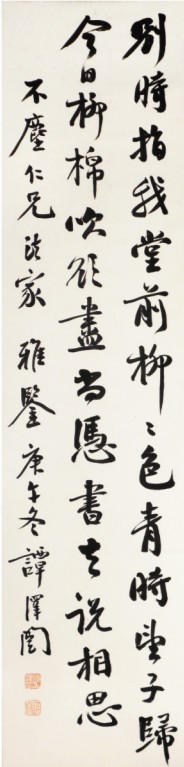 別時指我堂前柳〻色青時望子歸
今日柳棉吹欲盡尚憑書去說相思
不塵仁兄法家 雅鑒 庚午冬 譚澤闓